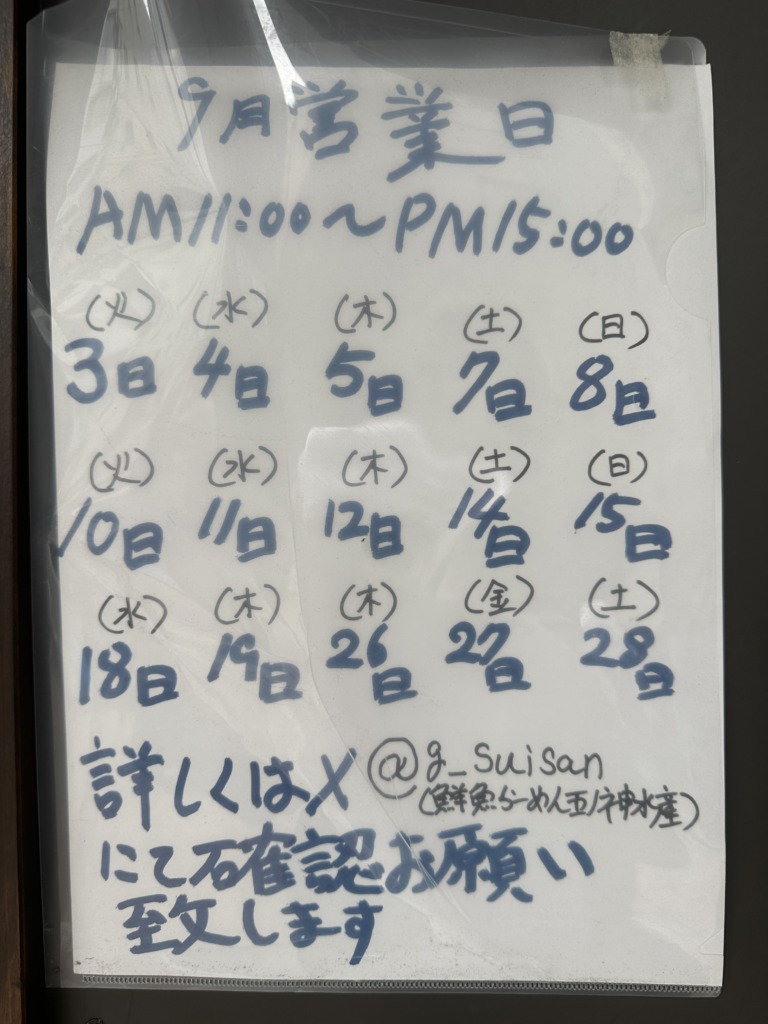 9月営業日
AM11:00〜PM15:00
(火) (水) (木) (土) (日)
3日 4日 5日 7日 8日
(火) (水) (木) (土) (日)
10日 11日 12日 14日 15日
(水) (木) (木) (金) (土)
18日 19日 26日 27日 28日
詳しくはX @g_suisan
(鮮魚らーめん五ノ神水産)
にて確認お願い
致します